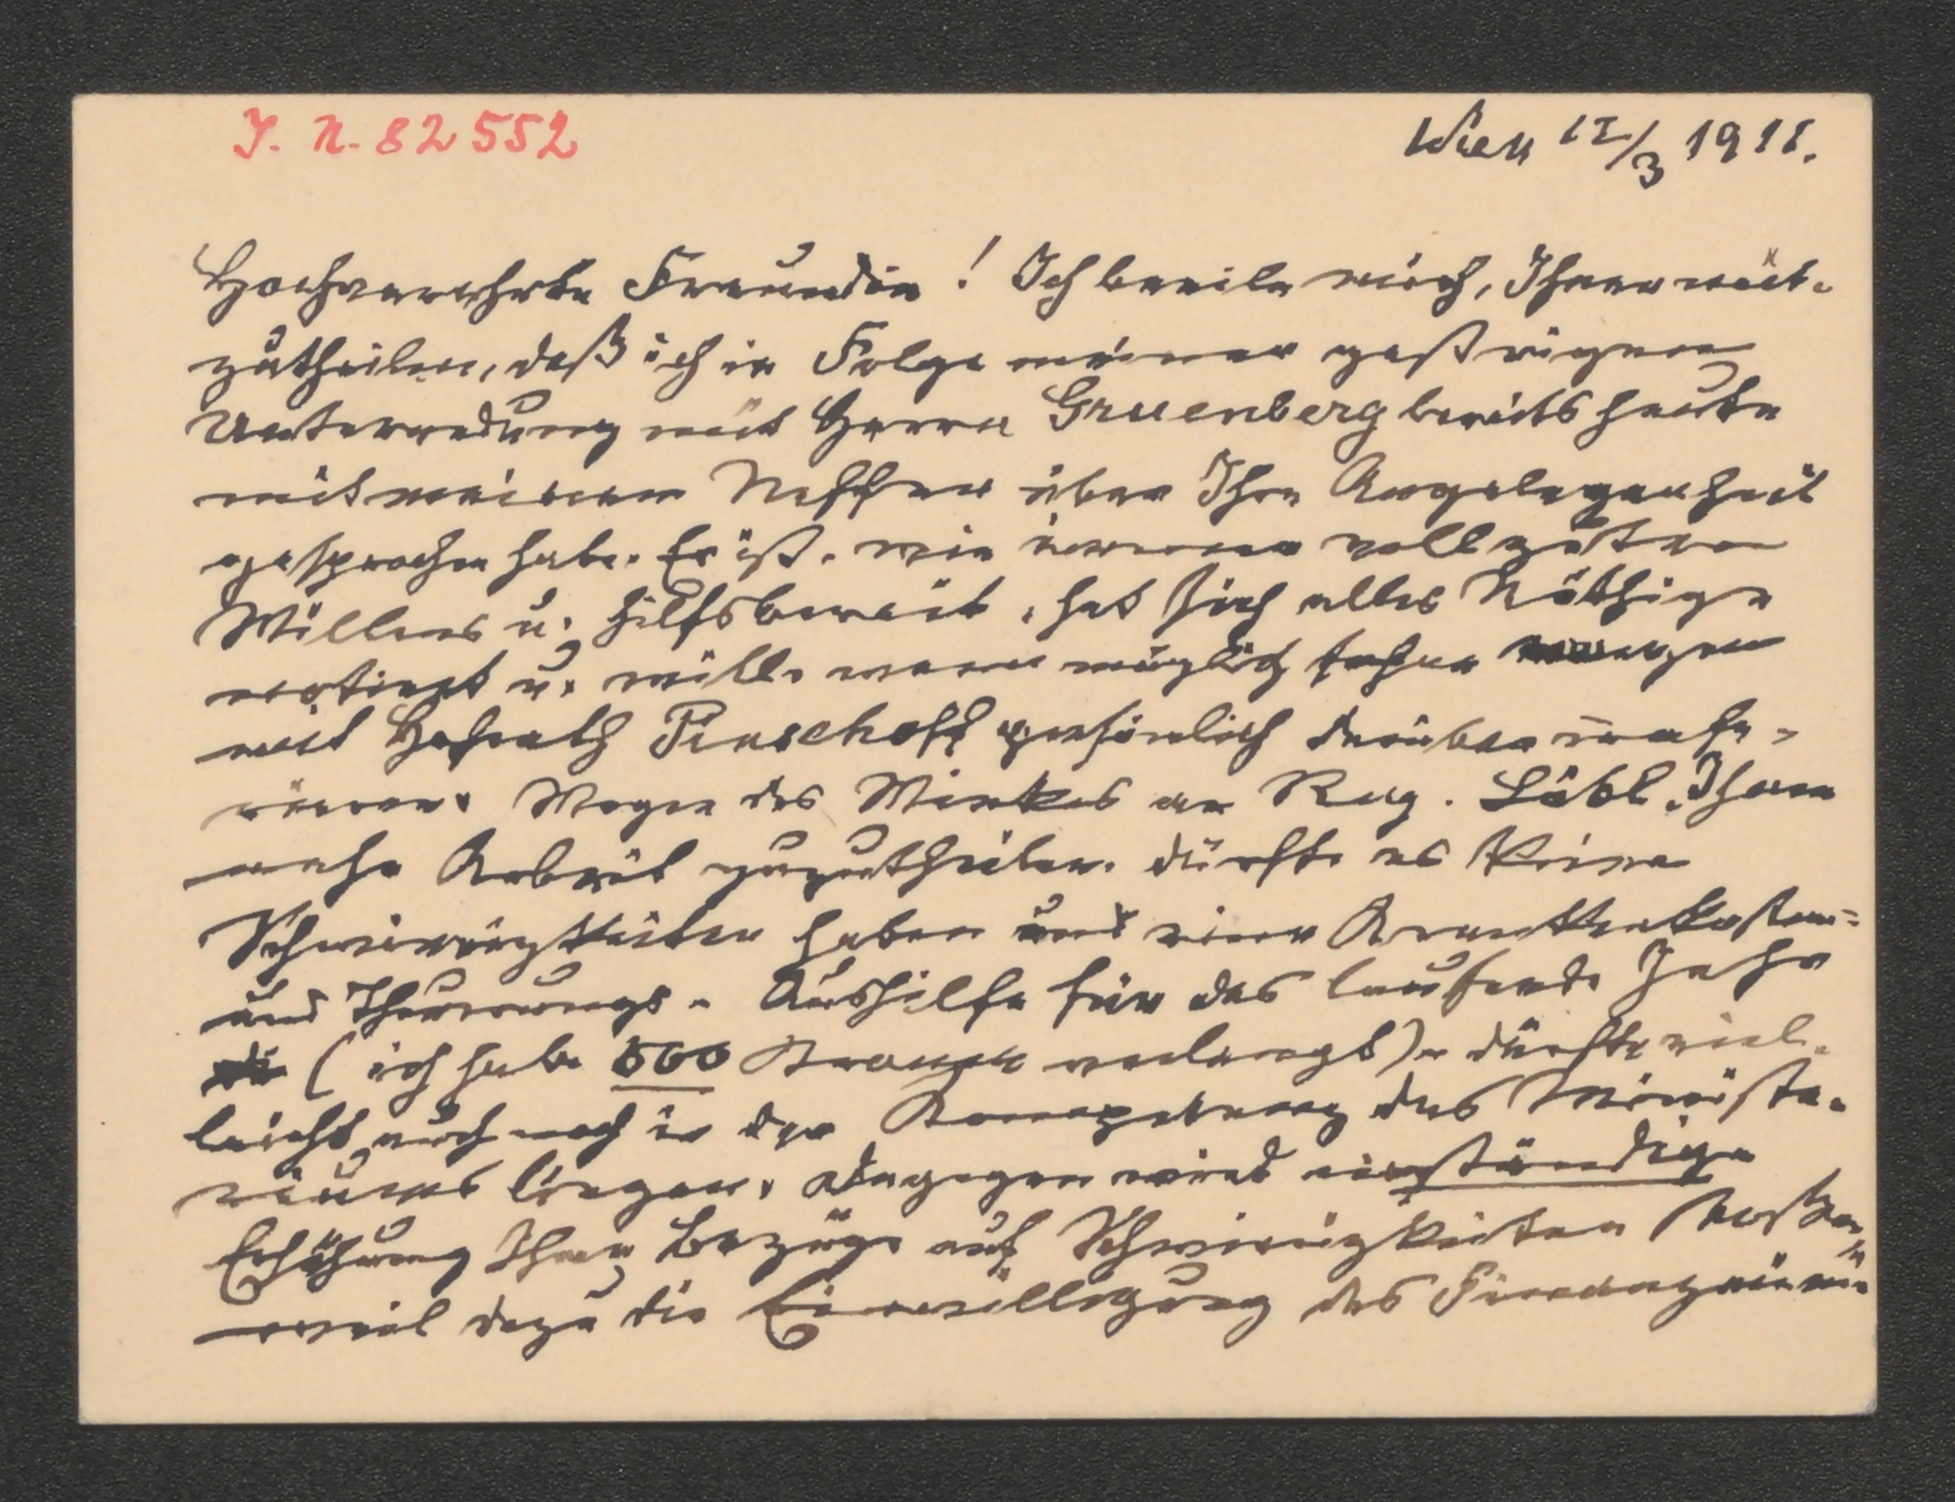 J. N. 82552
Wien 12/3 1911.
Hochverehrte Freundin! Ich beeile mich, Ihnen mit-
zutheilen, daß ich in Folge meiner gestrigen
Unterredung mit Herrn Gruenberg bereits heute
mit meinem Neffen über Ihre Angelegenheit
gesprochen habe. Er ist, wie immer voll guten
Willens u. hilfsbereit, hat sich alles Nöthige
notiert u. will, wenn möglich schon morgen
mit Hofrath Pinschoff persönlich darüber
Wegen des Winkes an Reg. Löbl, Ihnen
mehr Arbeit zuzutheilen, dürfte es keine
Schwierigkeiten haben und eine Krankenkosten-
und Theuerungs-Aushilfe für das laufende Jahr
(ich habe 500 Kronen verlangt), dürfte viel-
leicht auch noch in der Kompetenz des Ministe-
riums liegen. Dagegen wird eine ständige
Erhöhung Ihrer Bezüge auf Schwierigkeiten stoßen,
weil dazu die Einwilligung des Finanzmini-